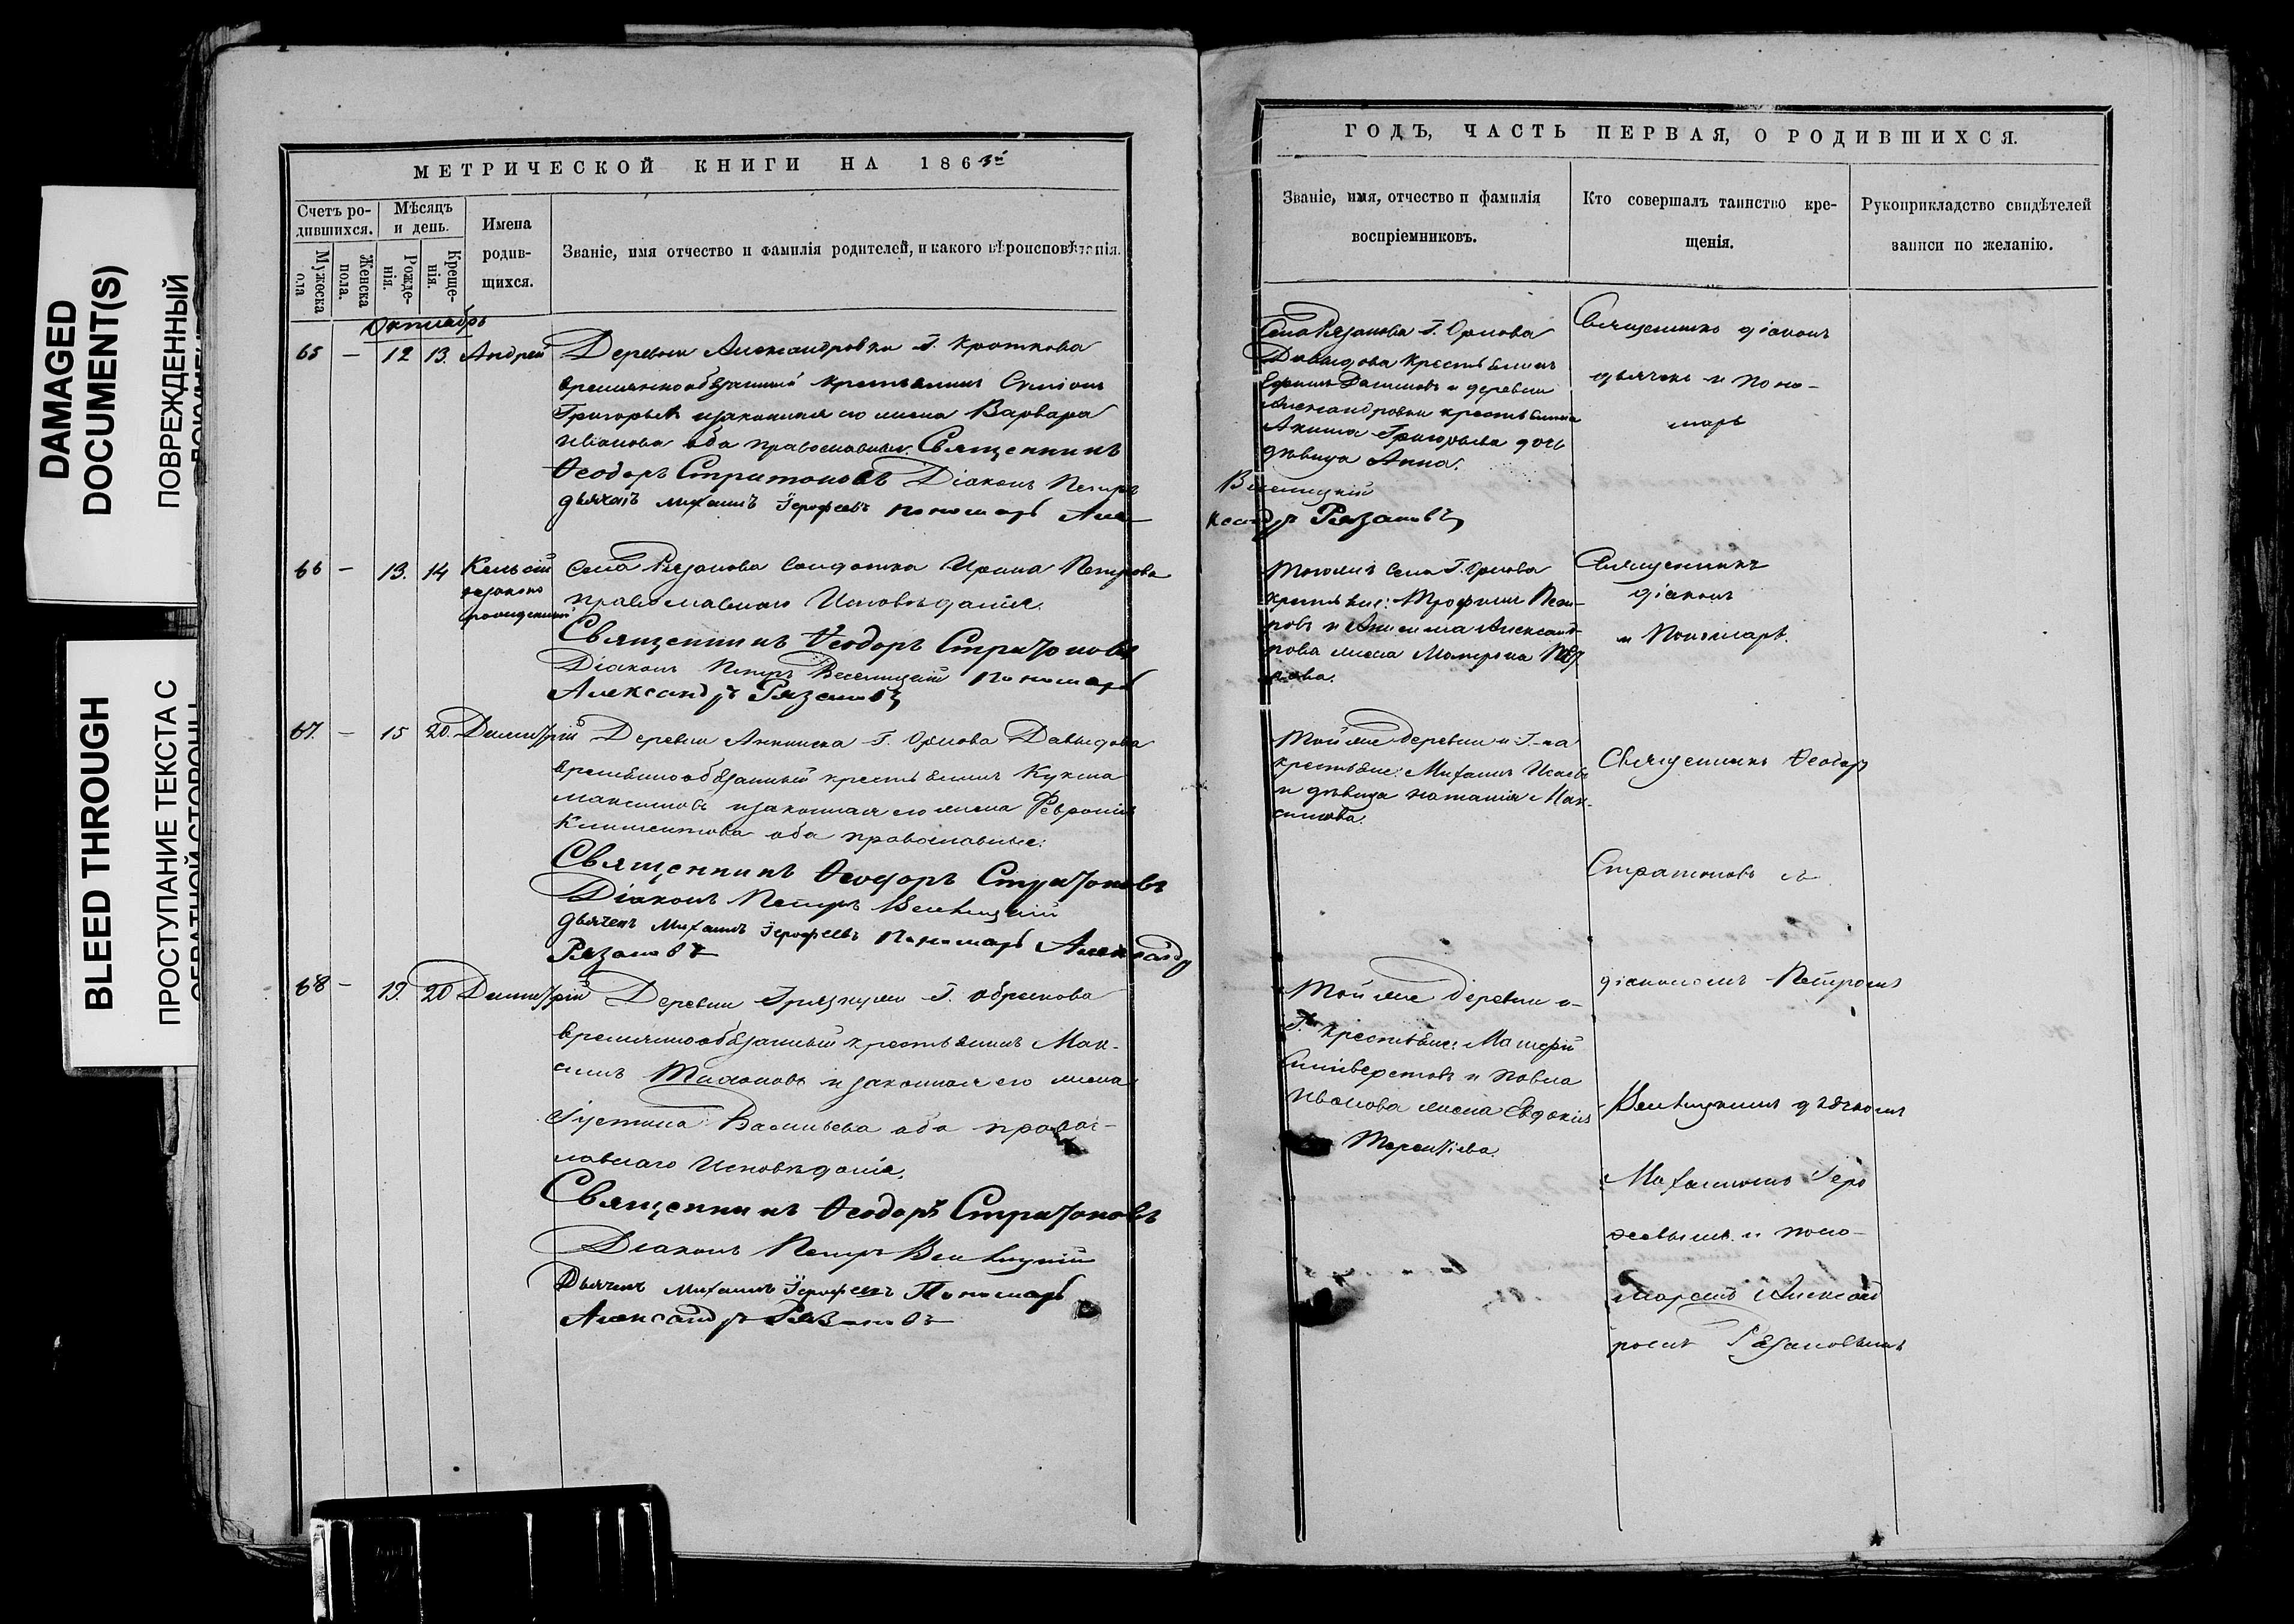 DAMAGED
DOCUMENT(S)
ПОВРЕЖДЕННЫЙ
BLEED THROUGH
ПРОСТУПАНИЕ ТЕКСТА С
МЕТРИЧЕСКОЙ КНИГИ НА 1863й
Счетъ ро-
дившихся.
Мѣсяцъ
и день.
Мужеска
пола
Женска
пола.
Рожде-
нія.
Креще-
нія.
Имена
родив-
шихся.
Званіе, имя отчество и фамилія родителей, и какого вѣроисповѣданія.
Октиабрь
65 — 12 13. Андрей
Деревни Александровки Г. Кроткова
временнообязанный крестьянинъ Симіонъ
Григорьевъ и законная его жена Варвара
Иванова оба православные. Священникъ
Ѳеодоръ Стратоновъ Діаконъ Петръ
дьячекъ Михаилъ Іерофеевъ пономарь Але-
66 — 13. 14 Кельсій
незаконно
рожденный
Села Рязанова солдатка Ирина Петрова
православнаго Исповѣданія.
Священникъ Ѳеодоръ Стратоновъ
Діаконъ Петръ Веселицкій Пономарь
Александръ Рязановъ
67. — 15 20. Димитрій
Деревни Аннинска Г. Орлова Давыдова
временнообязанный крестьянинъ Кузма
Максимовъ и законная его жена Февронія
Климентова оба православные.
Священникъ Ѳеодоръ Стратоновъ
Діаконъ Петръ Веселицкій
дьячекъ Михаилъ Іерофеевъ Пономарь Александръ
Рязановъ
68 — 19. 20 Димитрій
Деревни Грязнухи Г.
временнообязанный крестьянинъ Мак-
симъ и законная его жена
Іустина Васильева оба правос-
лавнаго Исповѣданія.
Священникъ Ѳеодоръ Стратоновъ
Діаконъ Петръ Веселицкій
Дьячекъ Михаилъ Іерофеевъ Пономарь
Александръ Рязановъ
ГОДЪ, ЧАСТЬ ПЕРВАЯ, О РОДИВШИХСЯ.
Званіе, имя, отчество и фамилія
воспріемниковъ.
Кто совершалъ таинство кре-
щенія.
Рукоприкладство свидѣтелей
записи по желанію.
Села Рязанова Г. Орлова
Давыдова крестьянинъ
и деревни
Александровки крестьянина
Григорьева дочь
дѣвица Анна.
Веселицкій
ксандръ Рязановъ
Священникъ діаконъ
дьячекъ и поно-
марь
Тогоже Села Г. Орлова
крестьян: Трофимъ Пет-
ровъ и Александ-
рова жена Матрона
Священникъ
діаконъ
и Пономарь.
Тойже деревни и Г-на
крестьян: Михаилъ
и дѣвица Наталія Мак-
симова.
Священникъ Ѳеодоръ
Стратоновъ съ
діакономъ Петромъ
Веселицкимъ дьячкомъ
Михаиломъ Іеро
ѳеевымъ и поно-
маремъ Александ
ромъ Рязановымъ
Тойже деревни и
Г. крестьян:
Силиверстовъ и Павла
Иванова жена Евдокія
Терентіева.